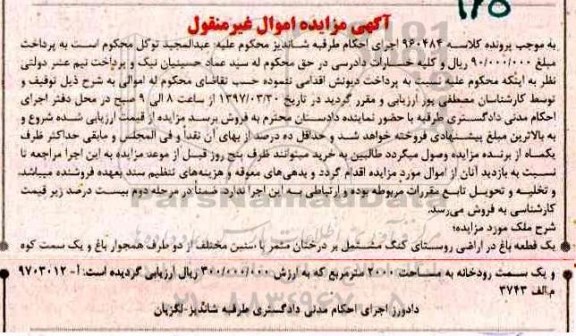 ۱۲۵
آگهی مزایده اموال غیرمنقول
به موجب پرونده کلاسه ۹۶۰۴۸۴ اجرای احکام طرقبه شاندیز محکوم علیه: عبدالمجید توکل محکوم است به پرداخت
مبلغ ۹۰/۰۰۰/۰۰۰ ریال و کلیه خسارات دادرسی در حق محکوم له سید عماد حسینیان نیک و پرداخت نیم عشر دولتی
نظر به اینکه محکوم علیه نسبت به پرداخت دیونش اقدامی ننموده حسب تقاضای محکوم له اموالی به شرح ذیل توقیف و
توسط کارشناسان مصطفی پور ارزیابی و مقرر گردید در تاریخ ۱۳۹۷/۰۳/۳۰ از ساعت ۸ الی ۹ صبح در محل دفتر اجرای
احکام مدنی دادگستری طرقبه با حضور نماینده دادستان محترم به فروش برسد مزایده از قیمت ارزیابی شده شروع و
به بالاترین مبلغ پیشنهادی فروخته خواهد شد و حداقل ده درصد از بهای آن نقداً و فی المجلس و مابقی حداکثر ظرف
یکماه از برنده مزایده وصول میگردد طالبین به خرید میتوانند ظرف پنج روز قبل از موعد مزایده به این اجرا مراجعه تا
نسبت به بازدید آنان از اموال مورد مزایده اقدام گردد و بدهی‌های معوقه و هزینه‌های تنظیم سند بعهده فروشنده میباشد.
و تخلیه و تحویل تابع مقررات مربوطه بوده و ارتباطی به این اجرا ندارد. ضمناً در مرحله دوم بیست درصد زیر قیمت
کارشناسی به فروش می‌رسد.
شرح ملک مورد مزایده:
یک قطعه باغ در اراضی روستای کنگ مشتمل بر درختان مثمر با سنین مختلف از دو طرف همجوار باغ و یک سمت کوه
و یک سمت رودخانه به مساحت ۲۰۰۰ مترمربع که به ارزش ۳۰۰/۰۰۰/۰۰۰ ریال ارزیابی گردیده است: آ- ۹۷۰۳۰۱۲
م.الف ۳۷۴۳
دادورز اجرای احکام مدنی دادگستری طرقبه شاندیز-لگزیان